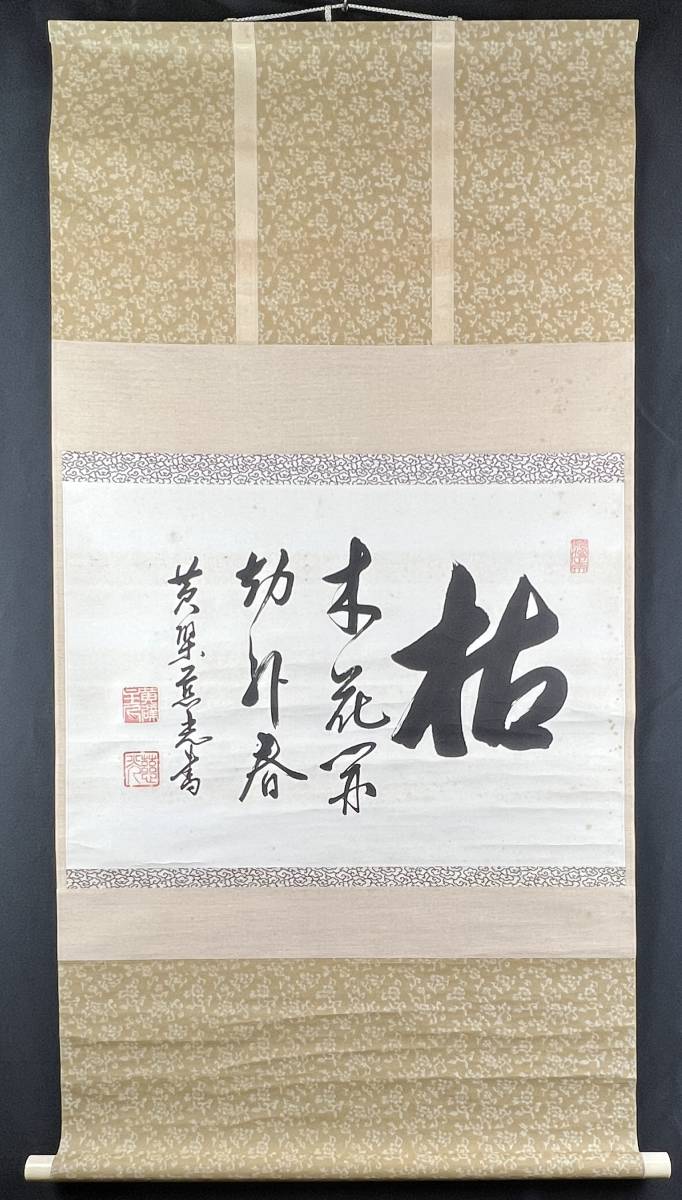 枯
木花開
劫外春
黄檗慈光書